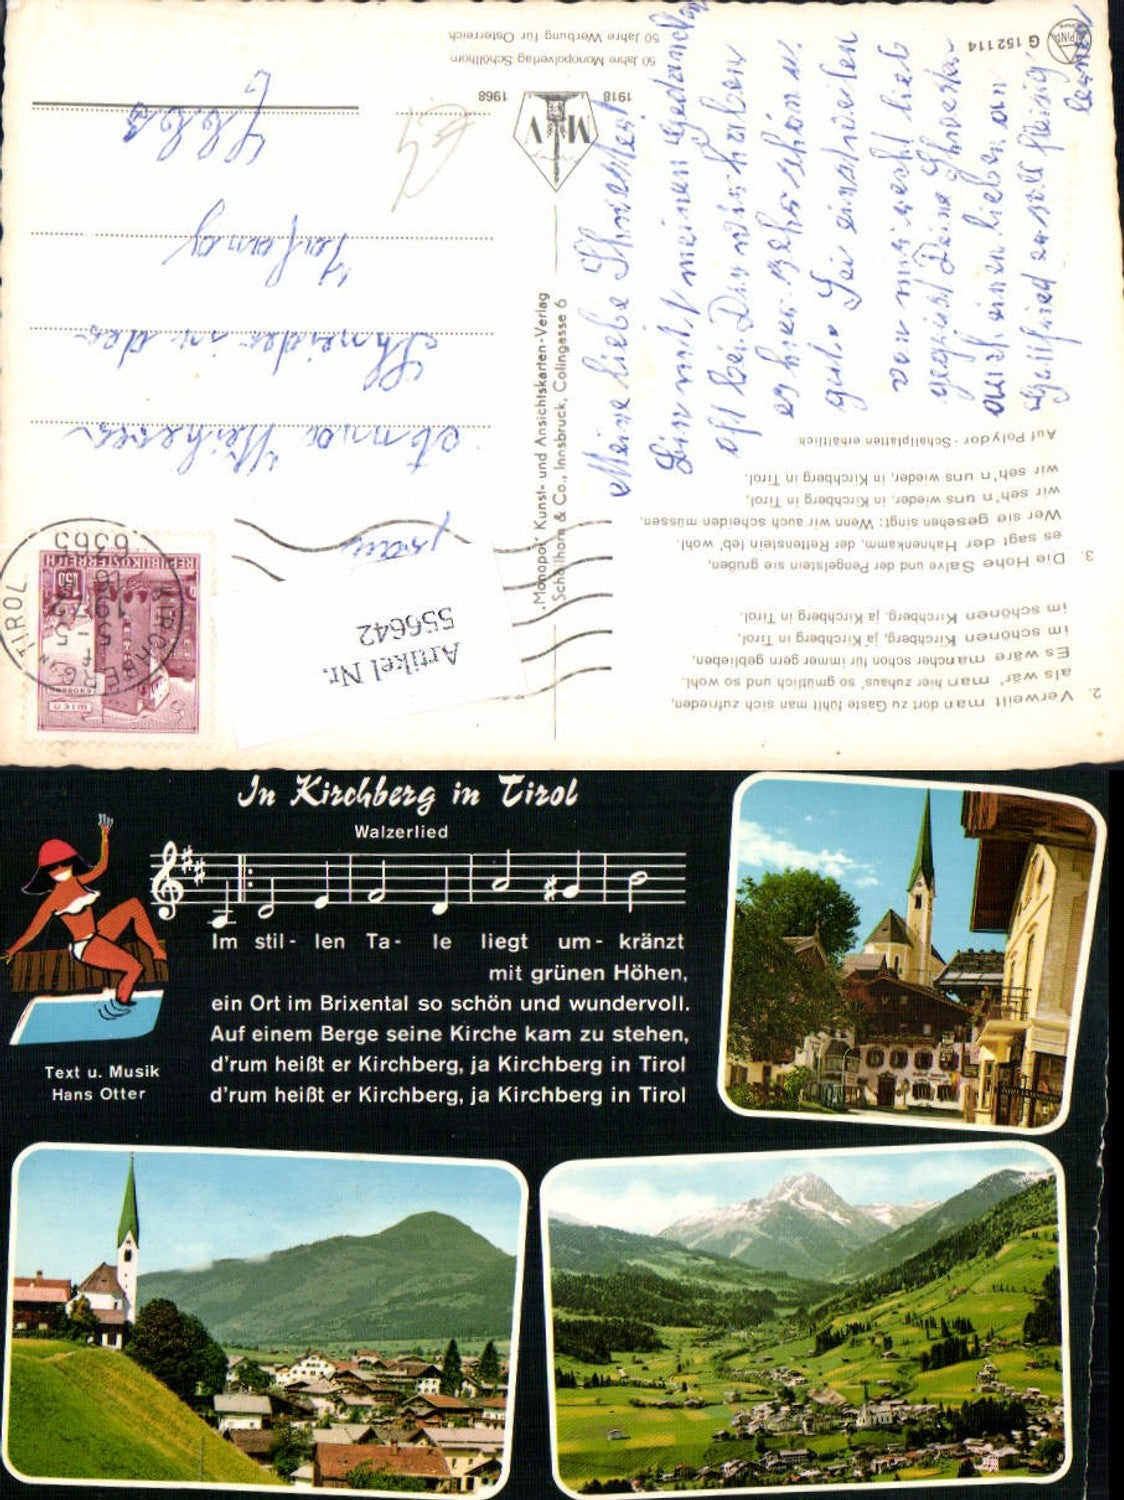 G 152114
50 Jahre Monopolverlag Schöllhorn
50 Jahre Werbung für Österreich
1918 1968
M V
Meine liebe Schwester!
Bin mit meinen Gedanken
oft bei Dir wir haben
es hier sehr schön u.
gut. Sei einstweilen
von mir recht lieb
gegrüßt Deine Schwester
auch einen lieben an
Gottfried er soll fleißig
lernen
Frau
Anna
Schneider in der
"Monopol" Kunst- und Ansichtskarten-Verlag
Schöllhorn & Co., Innsbruck, Colingasse 6
Artikel Nr.
556642
REPUBLIK ÖSTERREICH
1.50
WIEN
KIRCHBERG IN TIROL
6365
2. Verweilt man dort zu Gaste fühlt man sich zufrieden,
als wär' man hier zuhaus' so gmütlich und so wohl.
Es wäre mancher schon für immer gern geblieben,
im schönen Kirchberg, ja Kirchberg in Tirol,
im schönen Kirchberg, ja Kirchberg in Tirol.
3. Die Hohe Salve und der Pengelstein sie grüßen,
es sagt der Hahnenkamm, der Rettenstein leb' wohl.
Wer sie gesehen singt: Wenn wir auch scheiden müssen,
wir seh'n uns wieder, in Kirchberg in Tirol,
wir seh'n uns wieder, in Kirchberg in Tirol.
Auf Polydor - Schallplatten erhältlich
In Kirchberg in Tirol
Walzerlied
Im stil- len Ta- le liegt um- kränzt
mit grünen Höhen,
ein Ort im Brixental so schön und wundervoll.
Auf einem Berge seine Kirche kam zu stehen,
d'rum heißt er Kirchberg, ja Kirchberg in Tirol
d'rum heißt er Kirchberg, ja Kirchberg in Tirol
Text u. Musik
Hans Otter